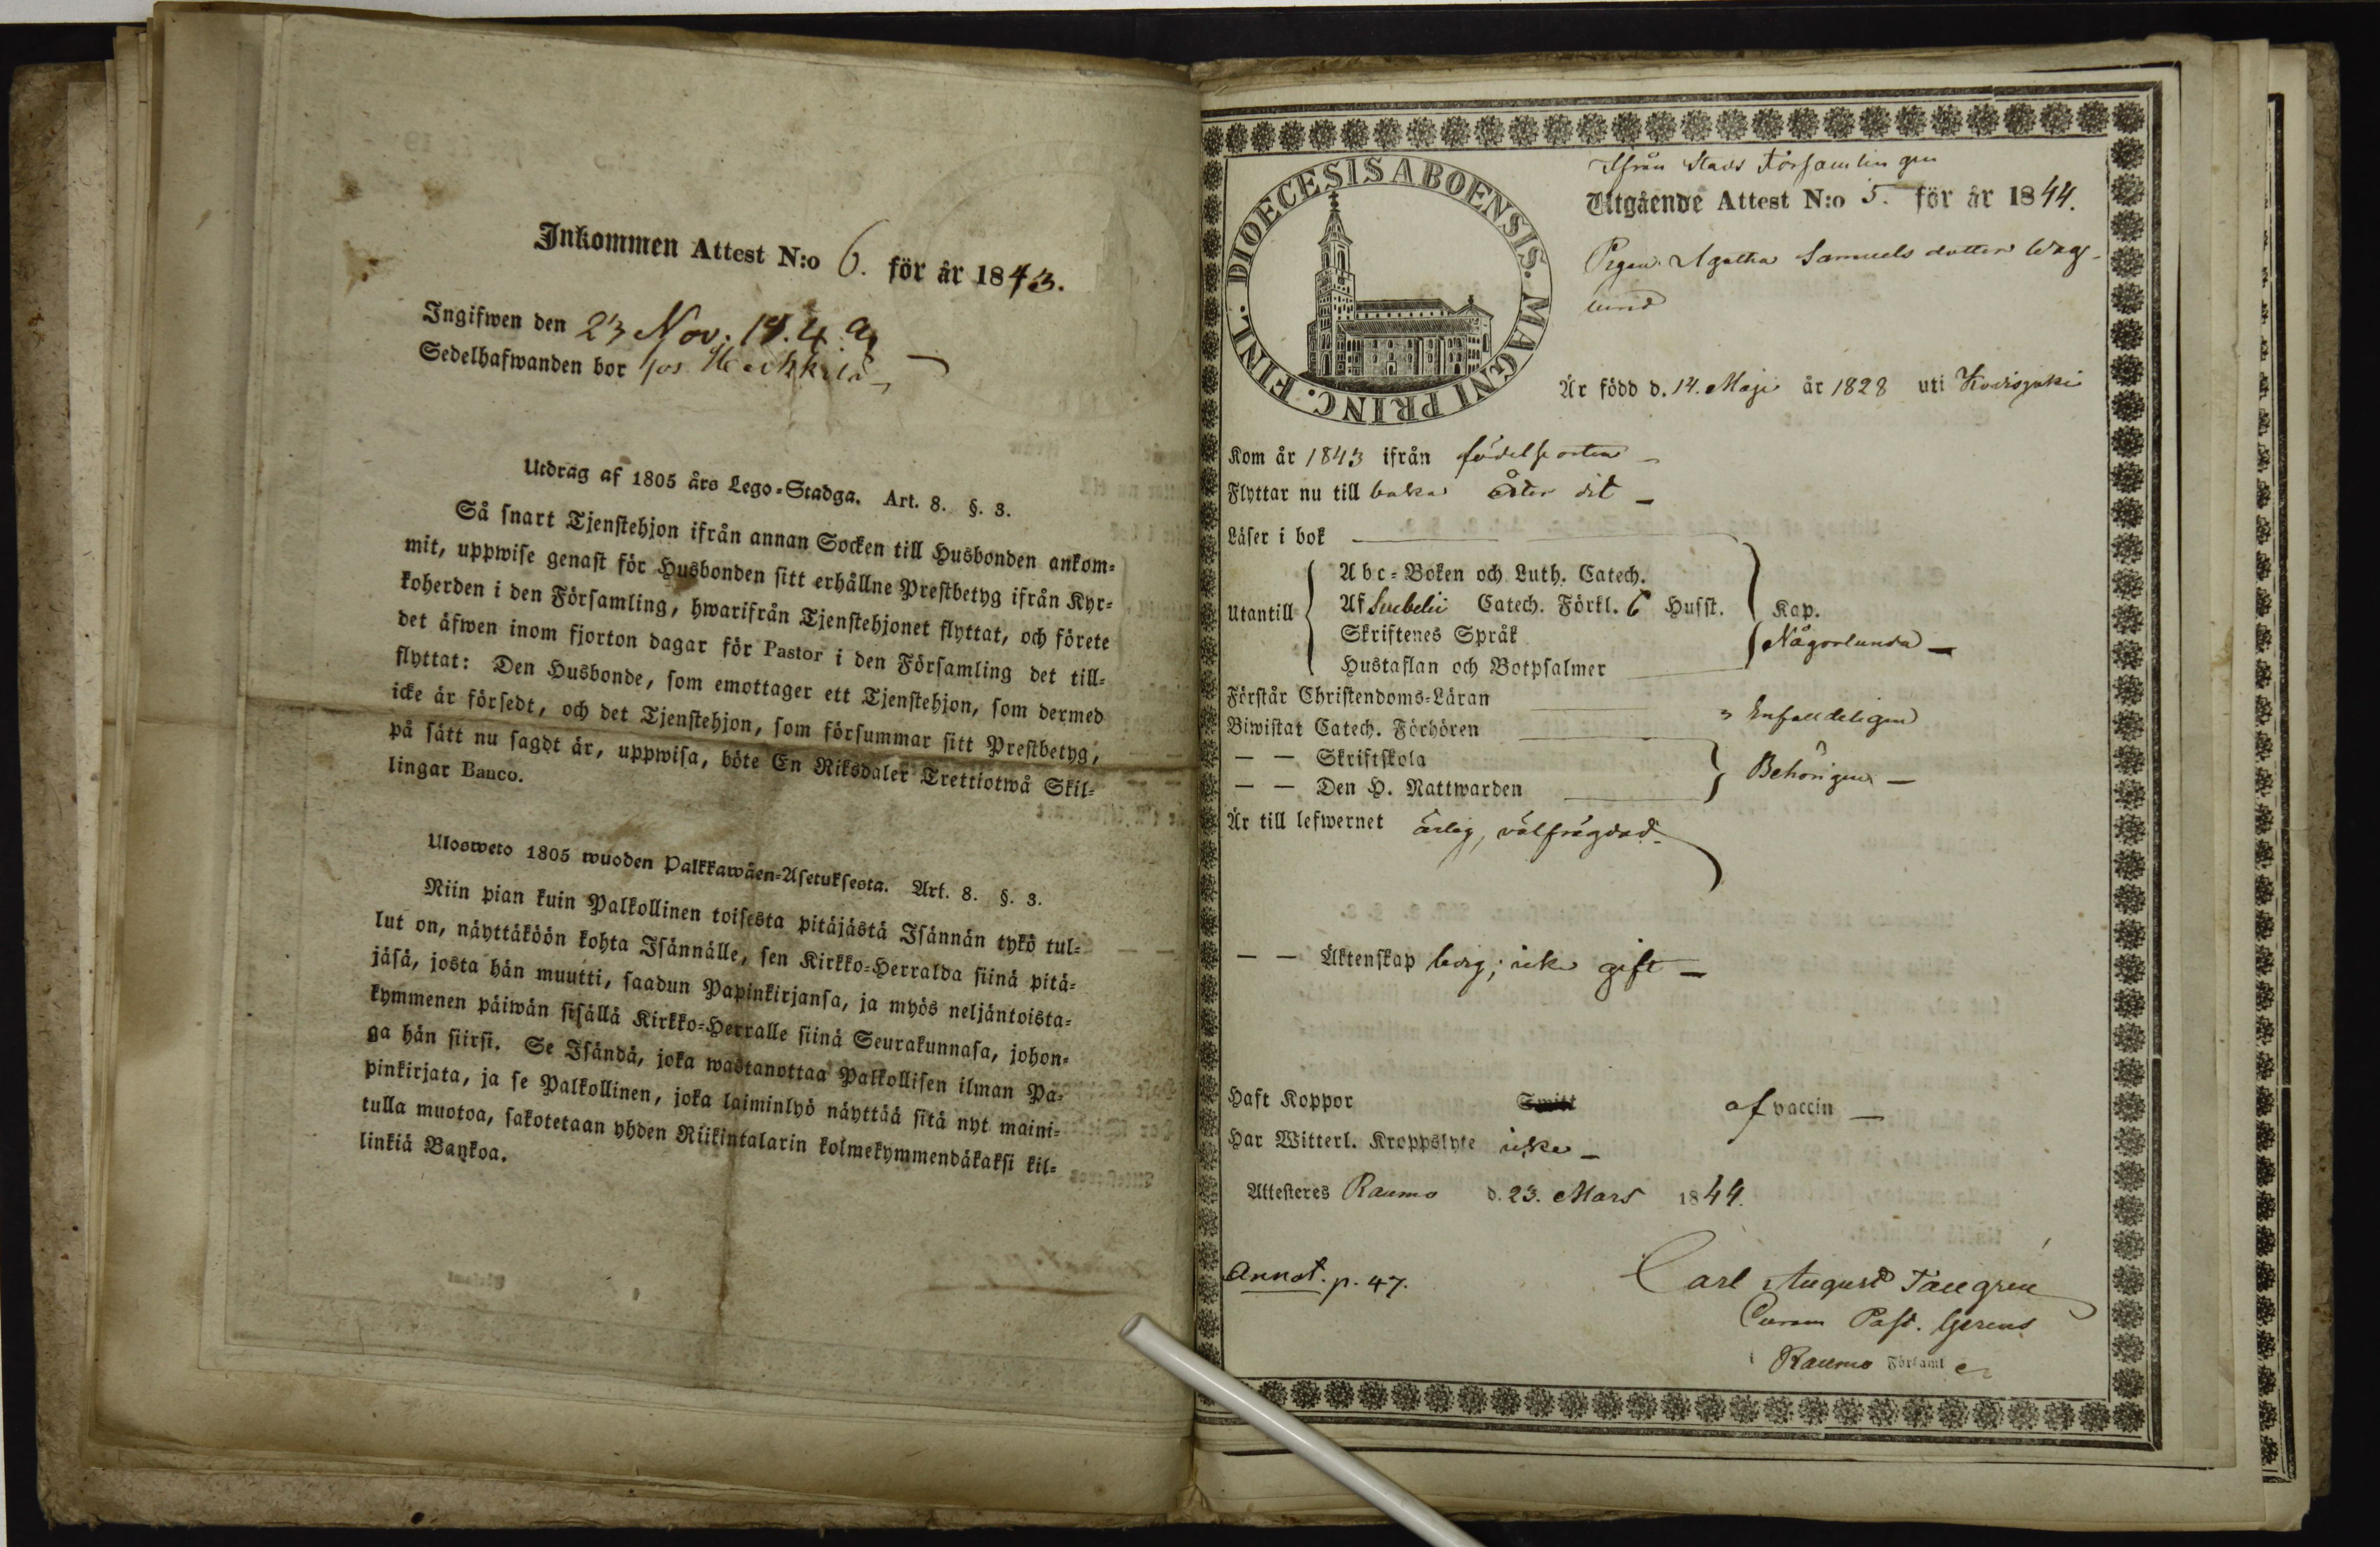 Inkommen Attest N:o 6. för år 1843.
Ingifwen den 23 Nov.
Sedelhafwanden bor hos Heikkilä
Utdrag af 1805 års Lego-Stadga. Art. 8. §. 3.
Så snart Tjenstehjon ifrån annan Socken till Husbonden ankom-
mit, uppwise genast för Husbonden sitt erhållne Prestbetyg ifrån Kyr-
koherden i den Församling, hwarifrån Tjenstehjonet flyttat, och förete
det äfwen inom fjorton dagar för Pastor i den Församling det till-
flyttat: Den Husbonde, som emottager ett Tjenstehjon, som dermed
icke är försedt, och det Tjenstehjon, som försummar sitt Prestbetyg,
på sätt nu sagdt är, uppwisa, böte En Riksdaler Trettiotwå Skil-
lingar Banco.
Ulosweto 1805 wuoden Palkkawäen-Asetuksesta. Art. 8. §. 3.
Niin pian kuin Palkollinen toisesta pitäjästä Isännän tykö tul-
lut on, näyttäköön kohta Isännälle, sen Kirkko-Herralda siinä pitä-
jäsä, josta hän muutti, saadun Papinkirjansa, ja myös neljäntoista-
kymmenen päiwän sisällä Kirkko-Herralle siinä Seurakunnasa, johon-
ga hän siirsi. Se Isändä, joka wastanottaa Palkollisen ilman Pa-
pinkirjata, ja se Palkollinen, joka laiminlyö näyttää sitä nyt maini-
tulla muotoa, sakotetaan yhden Riikintalarin kolmekymmendäkaksi kil-
linkiä Bankoa.
DIOECESIS ABOENSIS. MAGNI PRINC. FINL.
Ifrån Stads Församlingen
Utgående Attest N:o 5. för år 1844.
Pigan Agatha Samuels dotter Wag-
lund
Är född d. 14. Maji år 1828 uti Kodisjoki
Kom år 1843 ifrån födelseorten
Flyttar nu till baka åter dit
Läser i bok
Utantill
Abc-Boken och Luth. Catech.
Af Svebelii Catech. Förkl. 6 Husst. Kap.
Skriftenes Språk
Någorlunda
Hustaflan och Botpsalmer
Förstår Christendoms-Läran
Enfalldeligen
Biwistat Catech. Förhören
— — Skriftskola
Behörigen
— — Den H. Nattwarden
Är till lefwernet ärlig, välfrägdad
— — Äktenskap ledig; icke gift
Haft Koppor af vaccin
Har Witterl. Kroppslyte icke
Attesteres Raumo d. 23. Mars 1844.
Annot. p. 47.
Carl August Tallgren
Curam Past. Gerens
i Raumo Församl